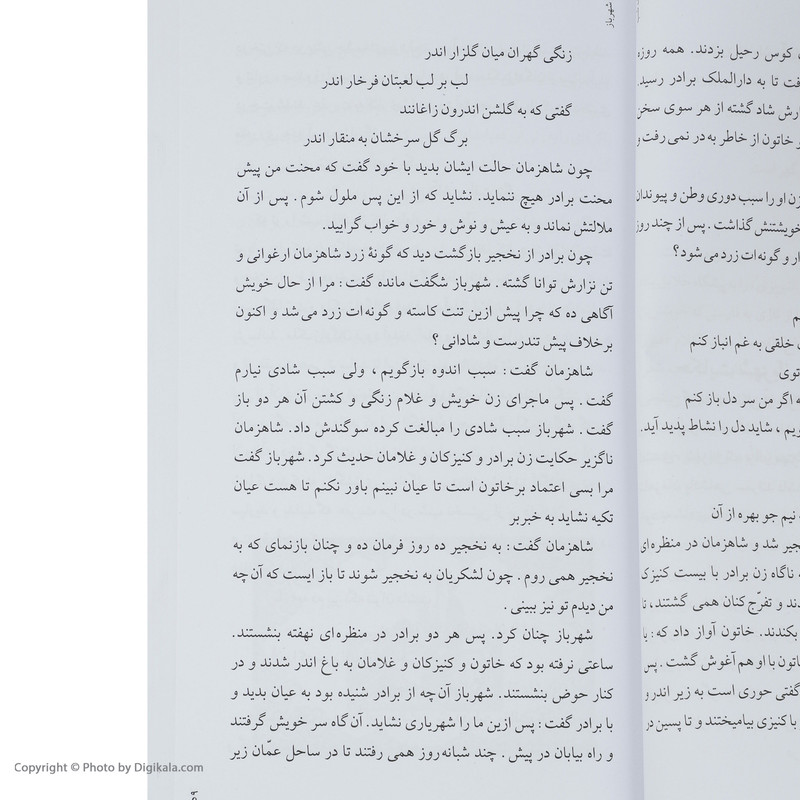 شهرباز
زنگی گهران میان گلزار اندر
لب بر لب لعبتان فرخار اندر
گفتی که به گلشن اندرون زاغانند
برگ گل سرخشان به منقار اندر
چون شاهزمان حالت ایشان بدید با خود گفت که محنت من پیش
محنت برادر هیچ ننماید. نشاید که از این پس ملول شوم. پس از آن
ملالتش نماند و به عیش و نوش و خور و خواب گرایید.
چون برادر از نخجیر بازگشت دید که گونهٔ زرد شاهزمان ارغوانی و
تن نزارش توانا گشته. شهرباز شگفت مانده گفت: مرا از حال خویش
آگاهی ده که چرا پیش ازین تنت کاسته و گونه‌ات زرد می‌شد و اکنون
برخلاف پیش تندرست و شادانی؟
شاهزمان گفت: سبب اندوه بازگویم، ولی سبب شادی نیارم
گفت. پس ماجرای زن خویش و غلام زنگی و کشتن آن هر دو باز
گفت. شهرباز سبب شادی را مبالغت کرده سوگندش داد. شاهزمان
ناگزیر حکایت زن برادر و کنیزکان و غلامان حدیث کرد. شهرباز گفت
مرا بسی اعتماد برخاتون است تا عیان نبینم باور نکنم تا هست عیان
تکیه نشاید به خبربر
شاهزمان گفت: به نخجیر ده روز فرمان ده و چنان بازنمای که به
نخجیر همی روم. چون لشکریان به نخجیر شوند تا باز ایست که آن‌چه
من دیدم تو نیز ببینی.
شهرباز چنان کرد. پس هر دو برادر در منظره‌ای نهفته بنشستند.
ساعتی نرفته بود که خاتون و کنیزکان و غلامان به باغ اندر شدند و در
کنار حوض بنشستند. شهرباز آن‌چه از برادر شنیده بود به عیان بدید و
با برادر گفت: پس ازین ما را شهریاری نشاید. آن‌گاه سر خویش گرفتند
و راه بیابان در پیش. چند شبانه‌روز همی رفتند تا در ساحل عمّان زیر
کوس رحیل بزدند. همه روزه
تا به دارالملک برادر رسید
شاد گشته از هر سوی سخن
خاتون از خاطر به در نمی رفت و
او را سبب دوری وطن و پیوندان
خویشتنش گذاشت. پس از چند روز
و گونه‌ات زرد می‌شود؟
خلقی به غم انباز کنم
توی
اگر من سر دل باز کنم
شاید دل را نشاط پدید آید.
نیم جو بهره از آن
شد و شاهزمان در منظره‌ای
ناگاه زن برادر با بیست کنیزک
و تفرّج‌کنان همی گشتند، تا
بکندند. خاتون آواز داد که: یا
با او هم آغوش گشت. پس
گفتی حوری است به زیر اندر و
با کنیزی بیامیختند و تا پسین در
Copyright © Photo by Digikala.com